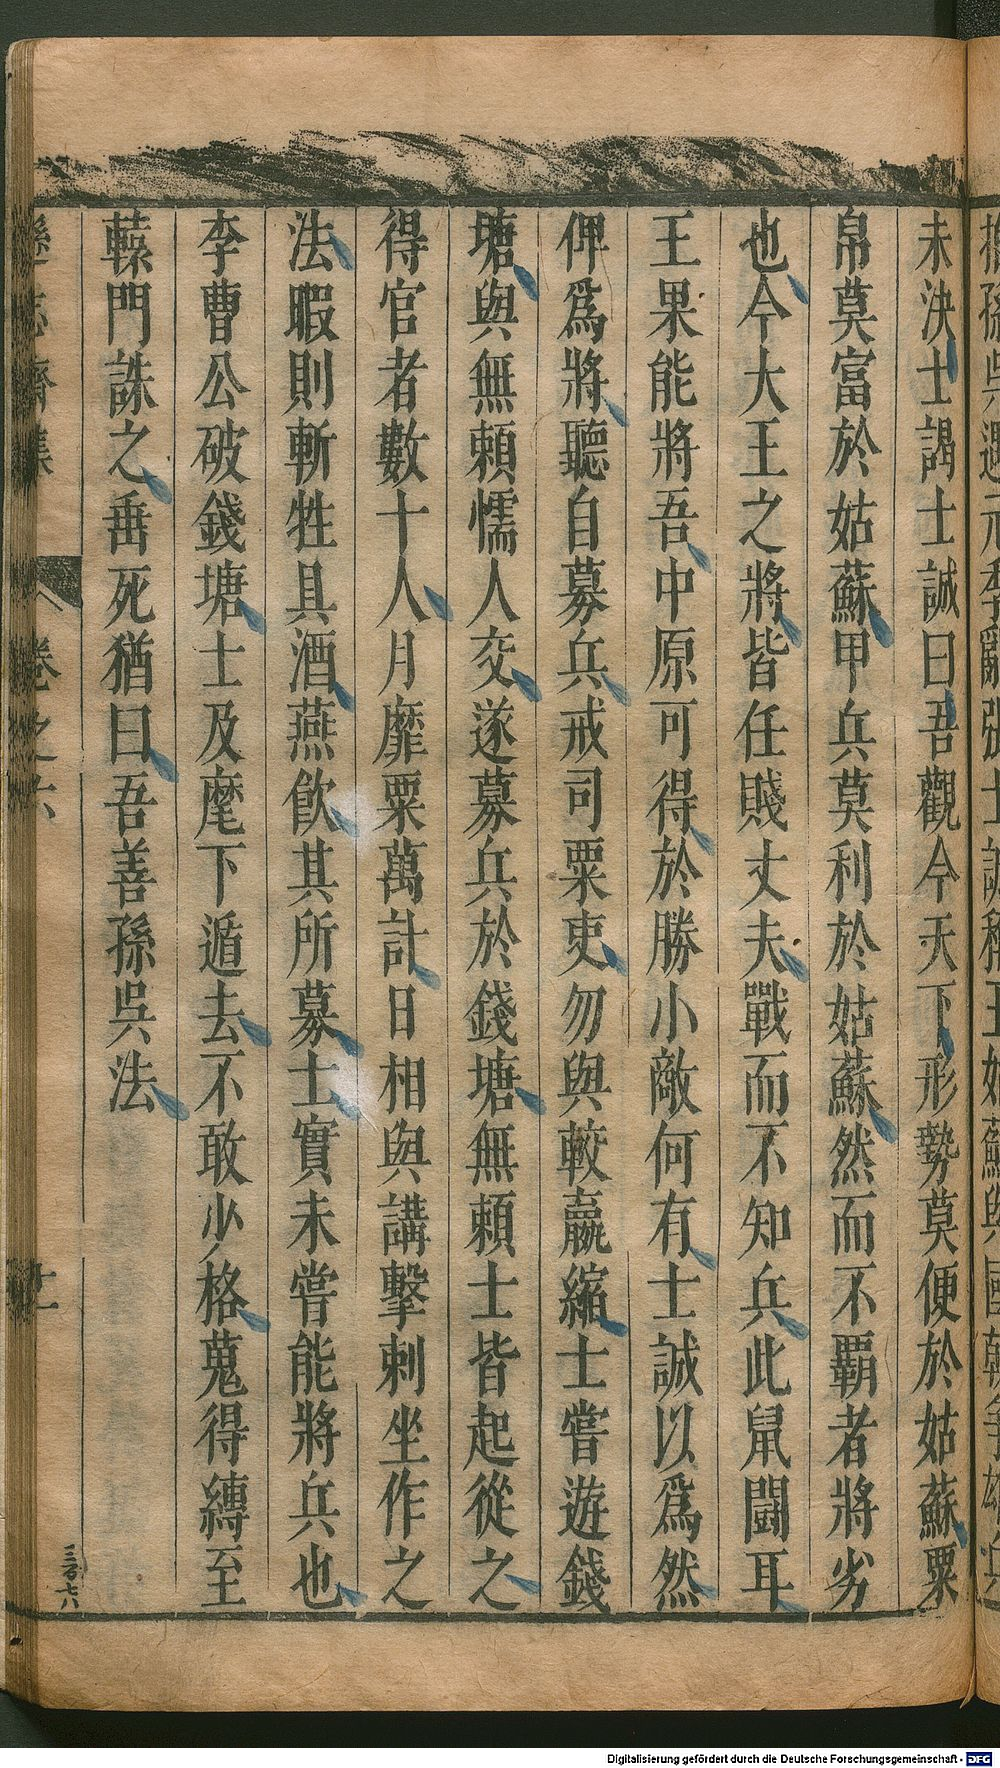 未決士謁士誠曰吾觀今天下形勢莫便於姑蘇粟
帛莫富於姑蘇甲兵莫利於姑蘇然而不霸者將劣
也今大王之將皆任賤丈夫戰而不知兵此鼠鬭耳
王果能將吾中原可得於勝小敵何有士誠以爲然
俾爲將聽自募兵戒司粟吏勿與較贏縮士嘗遊錢
塘與無賴懦人交遂募兵於錢塘無賴士皆起從之
得官者數十人月靡粟萬計日相與講擊刺坐作之
法暇則斬牲具酒燕飲其所募士實未嘗能將兵也
李曹公破錢塘士及麾下遁去不敢少格蒐得縛至
轅門誅之垂死猶曰吾善孫吳法
遜志齋集
卷之六
十一
Digitalisierung gefördert durch die Deutsche Forschungsgemeinschaft - DFG